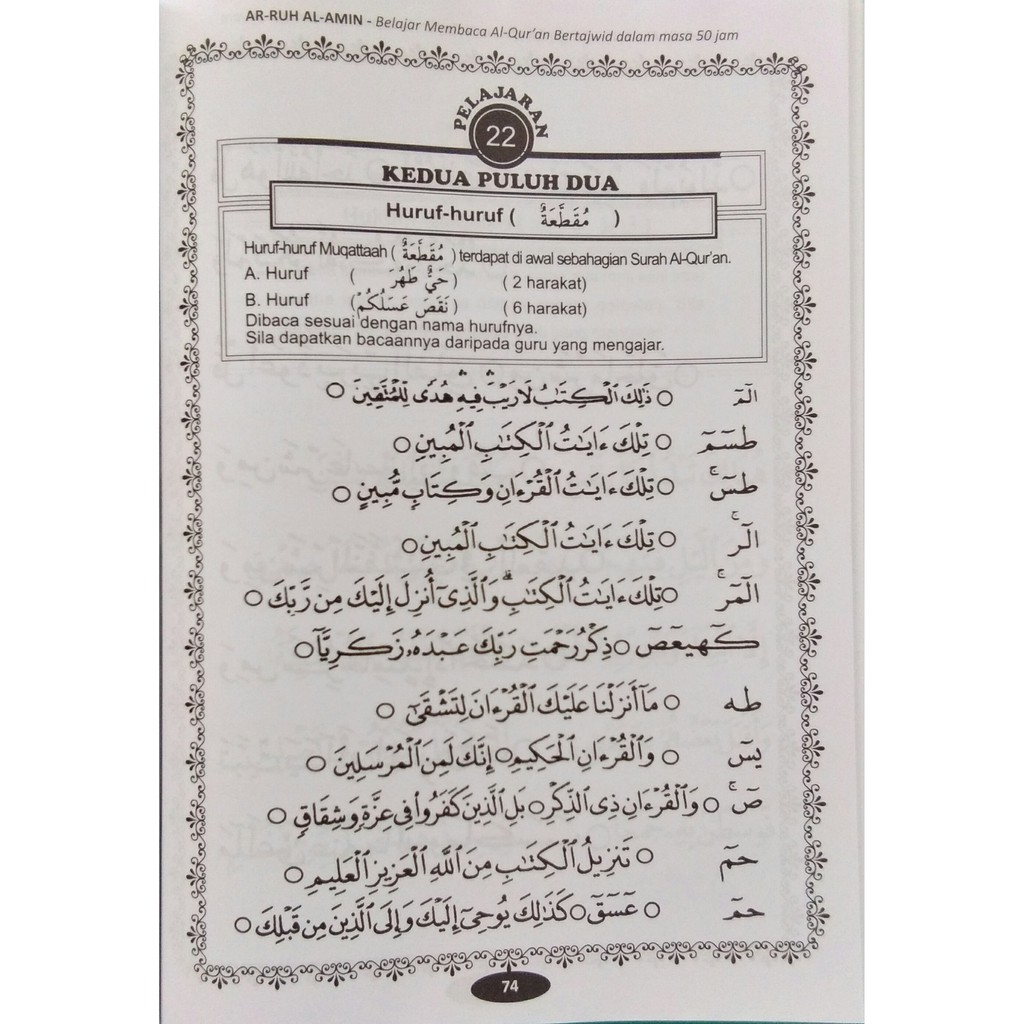 AR-RUH AL-AMIN - Belajar Membaca Al-Qur'an Bertajwid dalam masa 50 jam
PELAJARAN
22
KEDUA PULUH DUA
Huruf-huruf ( مُقَطَّعَةٌ )
Huruf-huruf Muqattaah ( مُقَطَّعَةٌ ) terdapat di awal sebahagian Surah Al-Qur'an.
A. Huruf ( حَيٌّ طَهُرَ ) ( 2 harakat)
B. Huruf (نَقَصَ عَسَلُكُمْ) ( 6 harakat)
Dibaca sesuai dengan nama hurufnya.
Sila dapatkan bacaannya daripada guru yang mengajar.
الٓمٓ ○ ذَٰلِكَ ٱلْكِتَٰبُ لَا رَيْبَ ۛ فِيهِ ۛ هُدًى لِّلْمُتَّقِينَ ○
طسٓمٓ ○ تِلْكَ ءَايَٰتُ ٱلْكِتَٰبِ ٱلْمُبِينِ ○
طسٓ ۚ ○ تِلْكَ ءَايَٰتُ ٱلْقُرْءَانِ وَكِتَابٍ مُّبِينٍ ○
الٓر ۚ ○ تِلْكَ ءَايَٰتُ ٱلْكِتَٰبِ ٱلْمُبِينِ ○
الٓمٓر ۚ ○ تِلْكَ ءَايَٰتُ ٱلْكِتَٰبِ ۗ وَٱلَّذِىٓ أُنزِلَ إِلَيْكَ مِن رَّبِّكَ ○
كٓهيعٓصٓ ○ ذِكْرُ رَحْمَتِ رَبِّكَ عَبْدَهُۥ زَكَرِيَّآ ○
طه ○ مَآ أَنزَلْنَا عَلَيْكَ ٱلْقُرْءَانَ لِتَشْقَىٰٓ ○
يسٓ ○ وَٱلْقُرْءَانِ ٱلْحَكِيمِ ○ إِنَّكَ لَمِنَ ٱلْمُرْسَلِينَ ○
صٓ ۚ ○ وَٱلْقُرْءَانِ ذِى ٱلذِّكْرِ ○ بَلِ ٱلَّذِينَ كَفَرُوا۟ فِى عِزَّةٍ وَشِقَاقٍ ○
حمٓ ○ تَنزِيلُ ٱلْكِتَٰبِ مِنَ ٱللَّهِ ٱلْعَزِيزِ ٱلْعَلِيمِ ○
حمٓ ○ عٓسٓقٓ ○ كَذَٰلِكَ يُوحِىٓ إِلَيْكَ وَإِلَى ٱلَّذِينَ مِن قَبْلِكَ ○
74